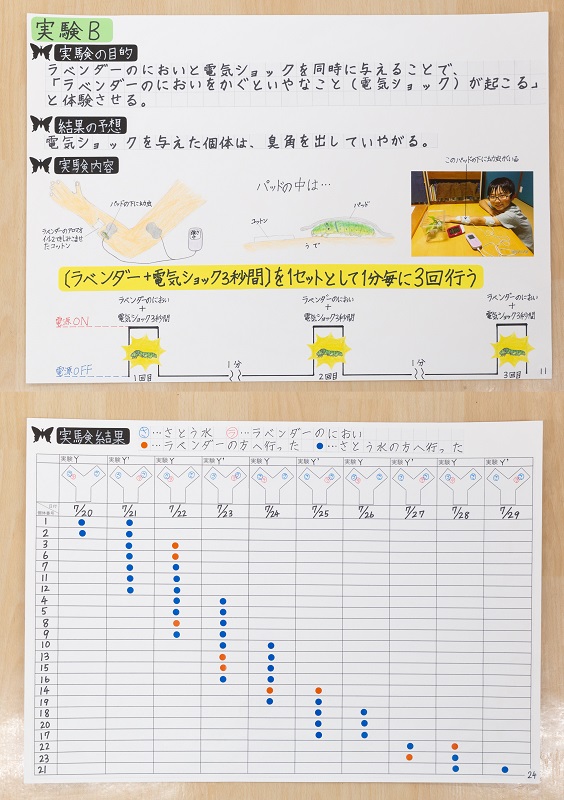 実験B
実験の目的
ラベンダーのにおいと電気ショックを同時に与えることで、
「ラベンダーのにおいをかぐといやなこと(電気ショック)が起こる」
と体験させる。
結果の予想
電気ショックを与えた個体は、臭角を出していやがる。
実験内容
パッドの下に幼虫
パッドの中は…
コットン
パッド
うで
このパッドの下に幼虫がいる
(ラベンダー+電気ショック3秒間)を1セットとして1分毎に3回行う
ラベンダーのにおい
+
電気ショック3秒間
ラベンダーのにおい
+
電気ショック3秒間
ラベンダーのにおい
+
電気ショック3秒間
電源ON
電源OFF
1回目
1分
2回目
1分
3回目
11
実験結果
さ…さとう水 ラ…ラベンダーのにおい
…ラベンダーの方へ行った …さとう水の方へ行った
実験Y 実験Y' 実験Y 実験Y' 実験Y 実験Y' 実験Y 実験Y' 実験Y 実験Y'
7/20 7/21 7/22 7/23 7/24 7/25 7/26 7/27 7/28 7/29
1
2
3
6
7
11
12
4
5
8
9
10
13
15
16
14
19
18
20
17
22
23
21
24